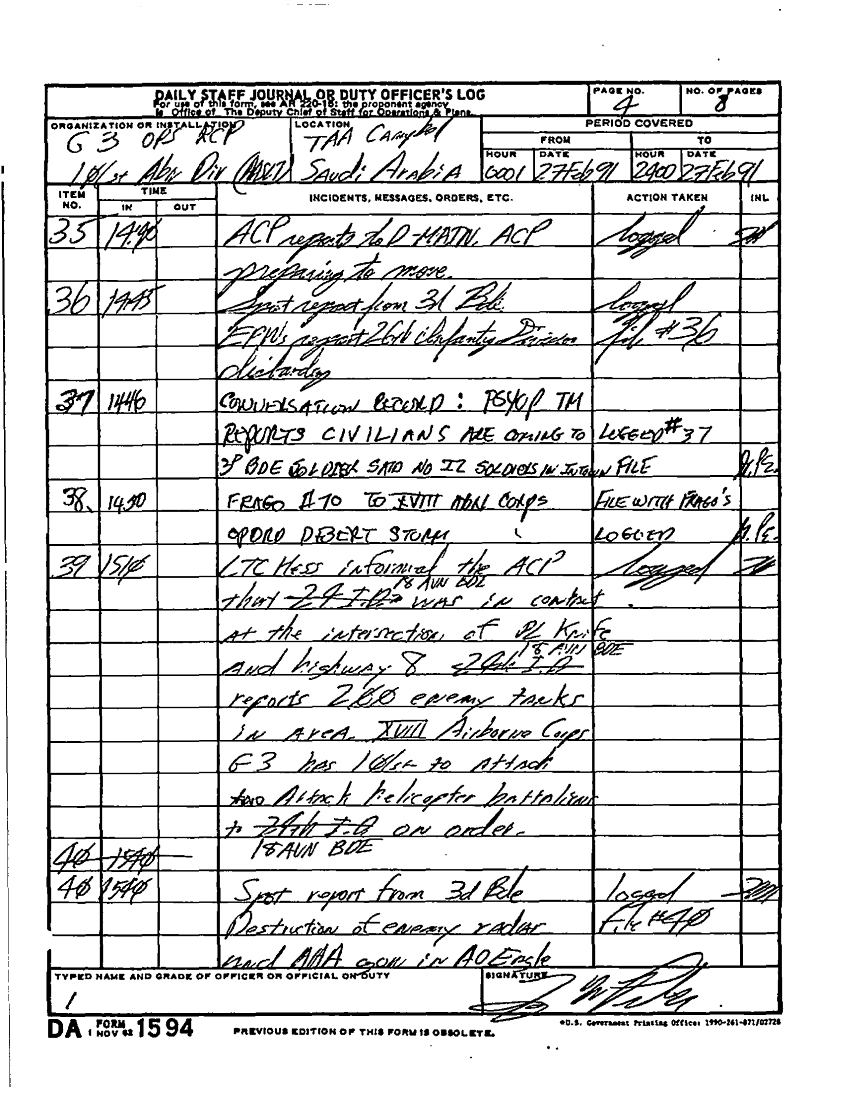 DAILY STAFF JOURNAL OR DUTY OFFICER'S LOG
For use of this form, see AR 220-15; the proponent agency
is Office of The Deputy Chief of Staff for Operations & Plans.
PAGE NO.
4
NO. OF PAGES
8
ORGANIZATION OR INSTALLATION
G 3 OPS RCP
101st Abn Div (AASLT)
LOCATION
TAA Campbell
Saudi Arabia
PERIOD COVERED
FROM
TO
HOUR DATE HOUR DATE
0001 27Feb91 2400 27Feb91
ITEM NO.
TIME
IN OUT
INCIDENTS, MESSAGES, ORDERS, ETC.
ACTION TAKEN
INL
35 ACP reports to D-MAIN. ACP logged
preparing to move.
36 1445 Spot report from 3d Bde. logged
EPWs report 26th Infantry Division file #36
37 1446 CONVERSATION RECORD: PSYOP TM
REPORTS CIVILIANS ARE COMING TO LOGGED #37
3D BDE SOLDIER SAID NO IZ SOLDIERS IN TOWN FILE
38. 1430 FRAGO #70 TO XVIII ABN CORPS FILE WITH FRAGO'S
OPORD DESERT STORM LOGGED
39 1510 LTC Hess informed the ACP logged
18 AVN BDE
that 24 I.D. was in contact
at the intersection of PL Knife
18 AVN BDE
and highway 8 24th I.D
reports 200 enemy tanks
in area. XVIII Airborne Corps
G3 has 101st to attach
two Attack helicopter battalions
to 24th I.D on order.
18 AVN BDE
40 1540
40 1540 Spot report from 3d Bde logged
Destruction of enemy radar File #40
and AAA gun in AO Eagle
TYPED NAME AND GRADE OF OFFICER OR OFFICIAL ON DUTY
SIGNATURE
DA FORM 1 NOV 62 1594
PREVIOUS EDITION OF THIS FORM IS OBSOLETE.
*U.S. Government Printing Office: 1990-261-871/02728